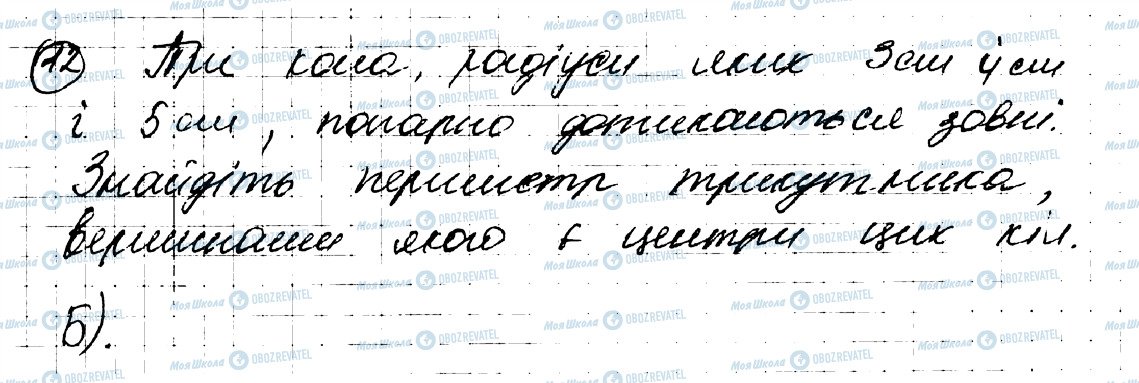 22 Три кола, радіуси яких 3см 4см
і 5см, попарно дотикаються зовні.
Знайдіть периметр трикутника,
вершинами якого є центри цих кіл.
Б).